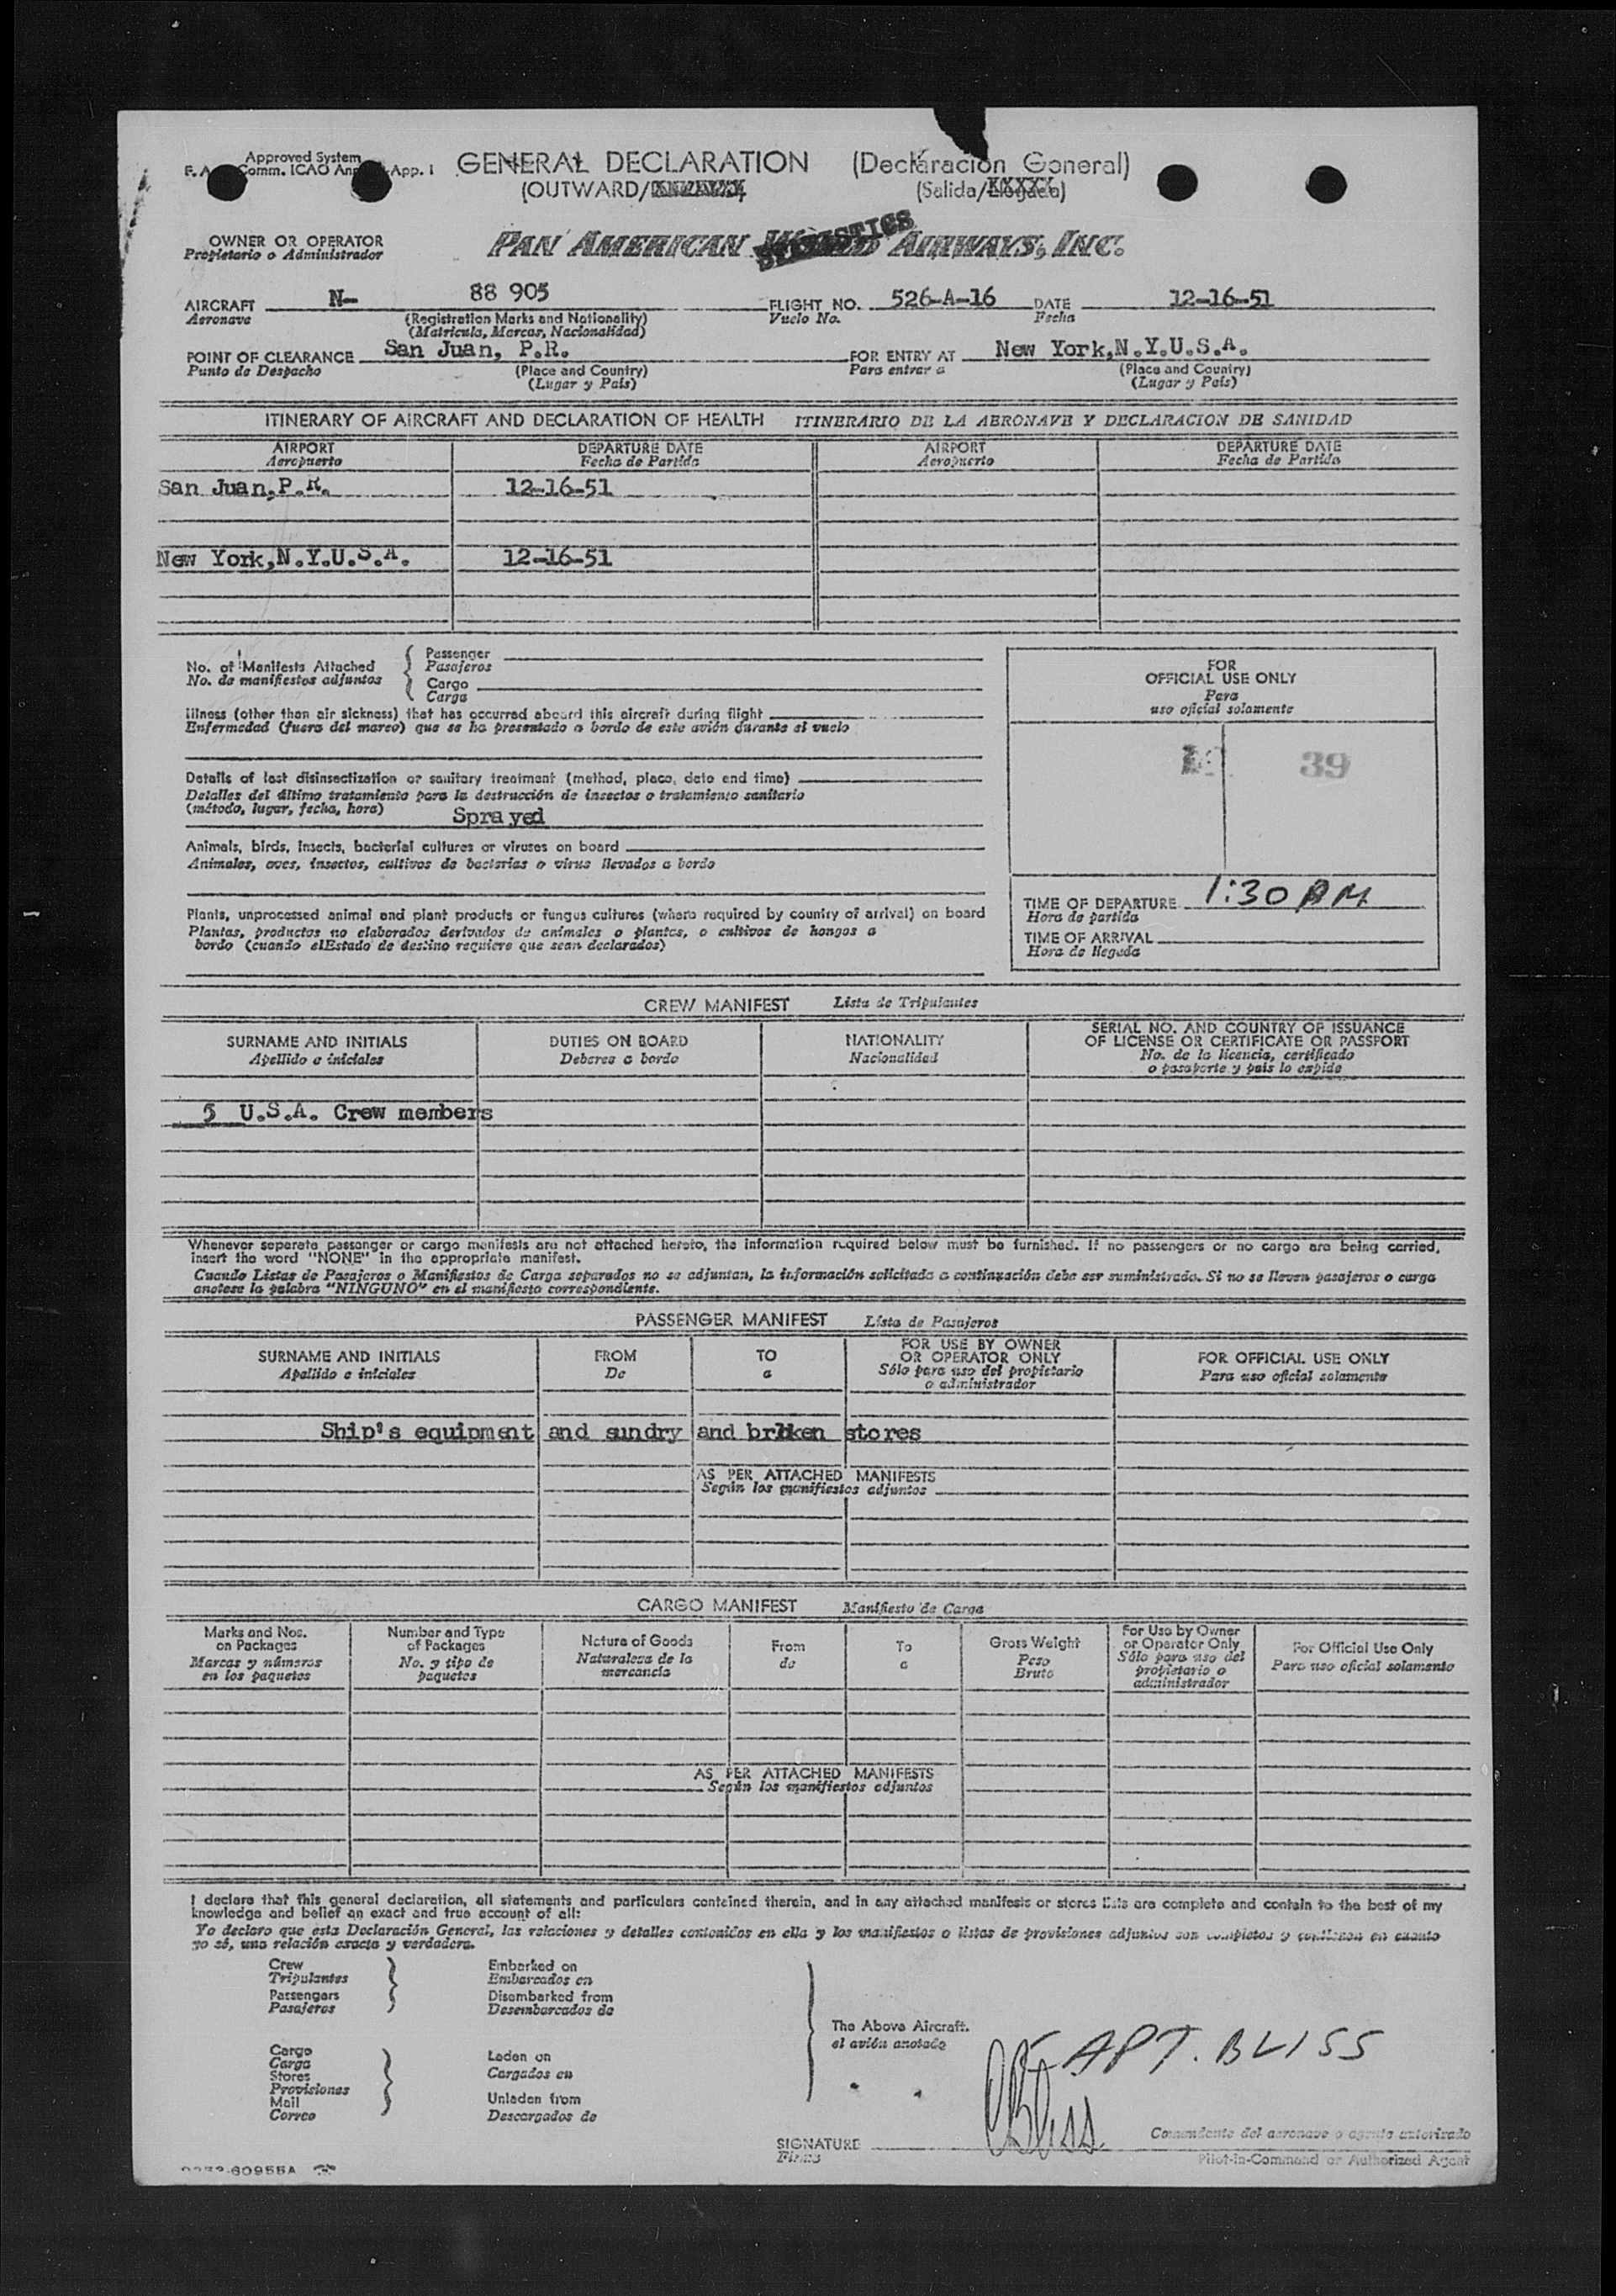 Approved System
Comm. ICAO App. I
GENERAL DECLARATION (Declaración General)
(OUTWARD/ (Salida/Llegada)
STATISTICS
OWNER OR OPERATOR
Propietario o Administrador
PAN AMERICAN WORLD AIRWAYS, INC.
AIRCRAFT N- 88 905 FLIGHT NO. 526-A-16 DATE 12-16-51
Aeronave (Registration Marks and Nationality) Vuelo No. Fecha
(Matricula, Marcas, Nacionalidad)
POINT OF CLEARANCE San Juan, P.R. FOR ENTRY AT New York,N.Y.U.S.A.
Punto de Despacho (Place and Country) Para entrar a (Place and Country)
(Lugar y País) (Lugar y País)
ITINERARY OF AIRCRAFT AND DECLARATION OF HEALTH ITINERARIO DE LA AERONAVE Y DECLARACION DE SANIDAD
AIRPORT DEPARTURE DATE AIRPORT DEPARTURE DATE
Aeropuerto Fecha de Partida Aeropuerto Fecha de Partida
San Juan,P.R. 12-16-51
New York,N.Y.U.S.A. 12-16-51
No. of Manifests Attached
No. de manifiestos adjuntos
Passenger
Pasajeros
Cargo
Carga
Illness (other than air sickness) that has occurred aboard this aircraft during flight
Enfermedad (fuera del mareo) que se ha presentado a bordo de este avión durante el vuelo
Details of last disinsectization or sanitary treatment (method, place, date and time)
Detalles del último tratamiento para la destrucción de insectos o tratamiento sanitario
(método, lugar, fecha, hora)
Spra yed
Animals, birds, insects, bacterial cultures or viruses on board
Animales, aves, insectos, cultivos de bacterias o virus llevados a bordo
Plants, unprocessed animal and plant products or fungus cultures (where required by country of arrival) on board
Plantas, productos no elaborados derivados de animales o plantas, o cultivos de hongos a
bordo (cuando elEstado de destino requiere que sean declarados)
FOR
OFFICIAL USE ONLY
Para
uso oficial solamente
39
TIME OF DEPARTURE 1:30 PM
Hora de partida
TIME OF ARRIVAL
Hora de llegada
CREW MANIFEST Lista de Tripulantes
SURNAME AND INITIALS DUTIES ON BOARD NATIONALITY SERIAL NO. AND COUNTRY OF ISSUANCE
OF LICENSE OR CERTIFICATE OR PASSPORT
Apellido e iniciales Deberes a bordo Nacionalidad No. de la licencia, certificado
o pasaporte y pais lo expide
5 U.S.A. Crew members
Whenever separate passenger or cargo manifests are not attached hereto, the information required below must be furnished. If no passengers or no cargo are being carried,
insert the word "NONE" in the appropriate manifest.
Cuando Listas de Pasajeros o Manifiestos de Carga separados no se adjuntan, la información solicitada a continuación debe ser suministrada. Si no se lleven pasajeros o carga
anotese la palabra "NINGUNO" en el manifiesto correspondiente.
PASSENGER MANIFEST Lista de Pasajeros
SURNAME AND INITIALS FROM TO FOR USE BY OWNER
OR OPERATOR ONLY FOR OFFICIAL USE ONLY
Apellido e iniciales De a Sólo para uso del propietario
o administrador Para uso oficial solamente
Ship's equipment and sundry and broken stores
AS PER ATTACHED MANIFESTS
Según los manifiestos adjuntos
CARGO MANIFEST Manifiesto de Carga
Marks and Nos.
on Packages
Marcas y números
en los paquetes
Number and Type
of Packages
No. y tipo de
paquetes
Nature of Goods
Naturaleza de la
mercancía
From
de
To
a
Gross Weight
Peso
Bruto
For Use by Owner
or Operator Only
Sólo para uso del
propietario o
administrador
For Official Use Only
Para uso oficial solamente
AS PER ATTACHED MANIFESTS
Según los manifiestos adjuntos
I declare that this general declaration, all statements and particulars contained therein, and in any attached manifests or stores lists are complete and contain to the best of my
knowledge and belief an exact and true account of all:
Yo declaro que esta Declaración General, las relaciones y detalles contenidos en ella y los manifiestos o listas de provisiones adjuntos son completos y contienen en cuanto
yo sé, una relación exacta y verdadera.
Crew
Tripulantes
Passengers
Pasajeros
Embarked on
Embarcados en
Disembarked from
Desembarcados de
Cargo
Carga
Stores
Provisiones
Mail
Correo
Laden on
Cargados en
Unladen from
Descargados de
The Above Aircraft.
el avión anotado
CAPT. BLISS
CBliss.
SIGNATURE
Firma
Comandante del aeronave o agente autorizado
Pilot-in-Command or Authorized Agent